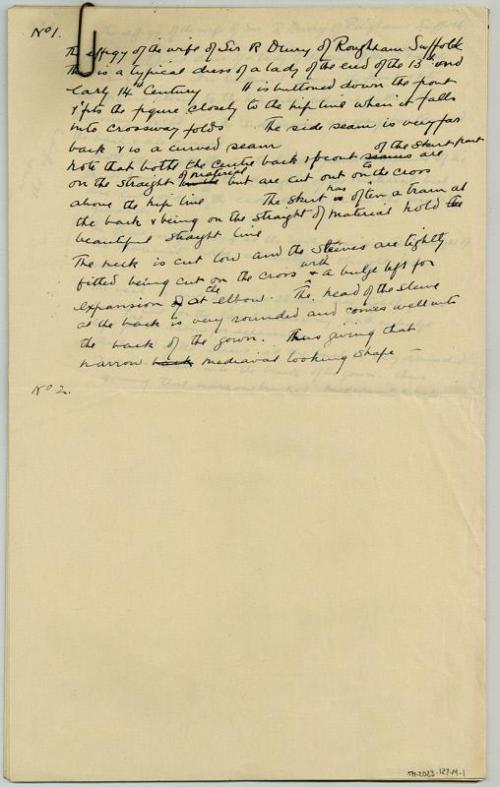 No 1.
The effigy of the wife of Sir R Drury of Rougham Suffolk
This is a typical dress of a lady of the end of the 13th and
early 14th Century It is buttoned down the front
& fits the figure closely to the hip line when it falls
into crossway folds The side seam is very far
back & is a curved seam of the skirt part
Note that both the centre back & front seams are
on the straight of material but are cut out on to the cross
above the hip line The skirt has often a train at
the back & being on the straight of material hold the
beautiful straight line
The neck is cut low and the sleeves are tightly
fitted being cut on the cross with a bulge left for
expansion at the elbow. The head of the sleeve
at the back is very rounded and comes well into
the back of the gown. Thus giving that
narrow back mediaval looking shape —
No 2.